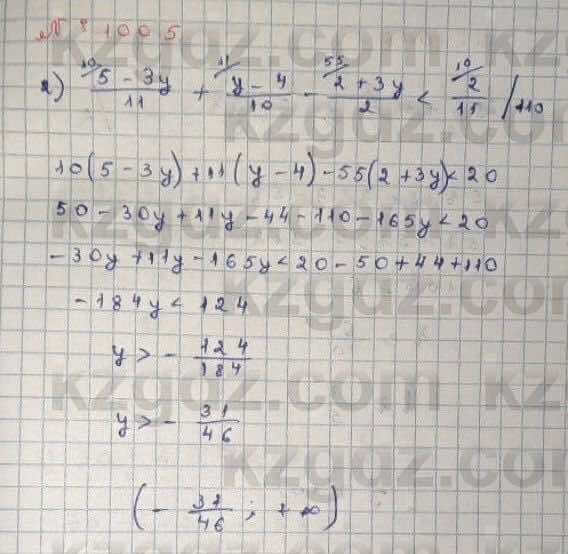 № 1005
2) 10/ 5 - 3y / 11 + 11/ y - 4 / 10 - 55/ 2 + 3y / 2 < 10/ 2 / 11 / 110
10(5 - 3y) + 11(y - 4) - 55(2 + 3y) < 20
50 - 30y + 11y - 44 - 110 - 165y < 20
-30y + 11y - 165y < 20 - 50 + 44 + 110
-184y < 124
y > - 124/184
y > - 31/46
(- 31/46 ; +∞)
kzgdz.com